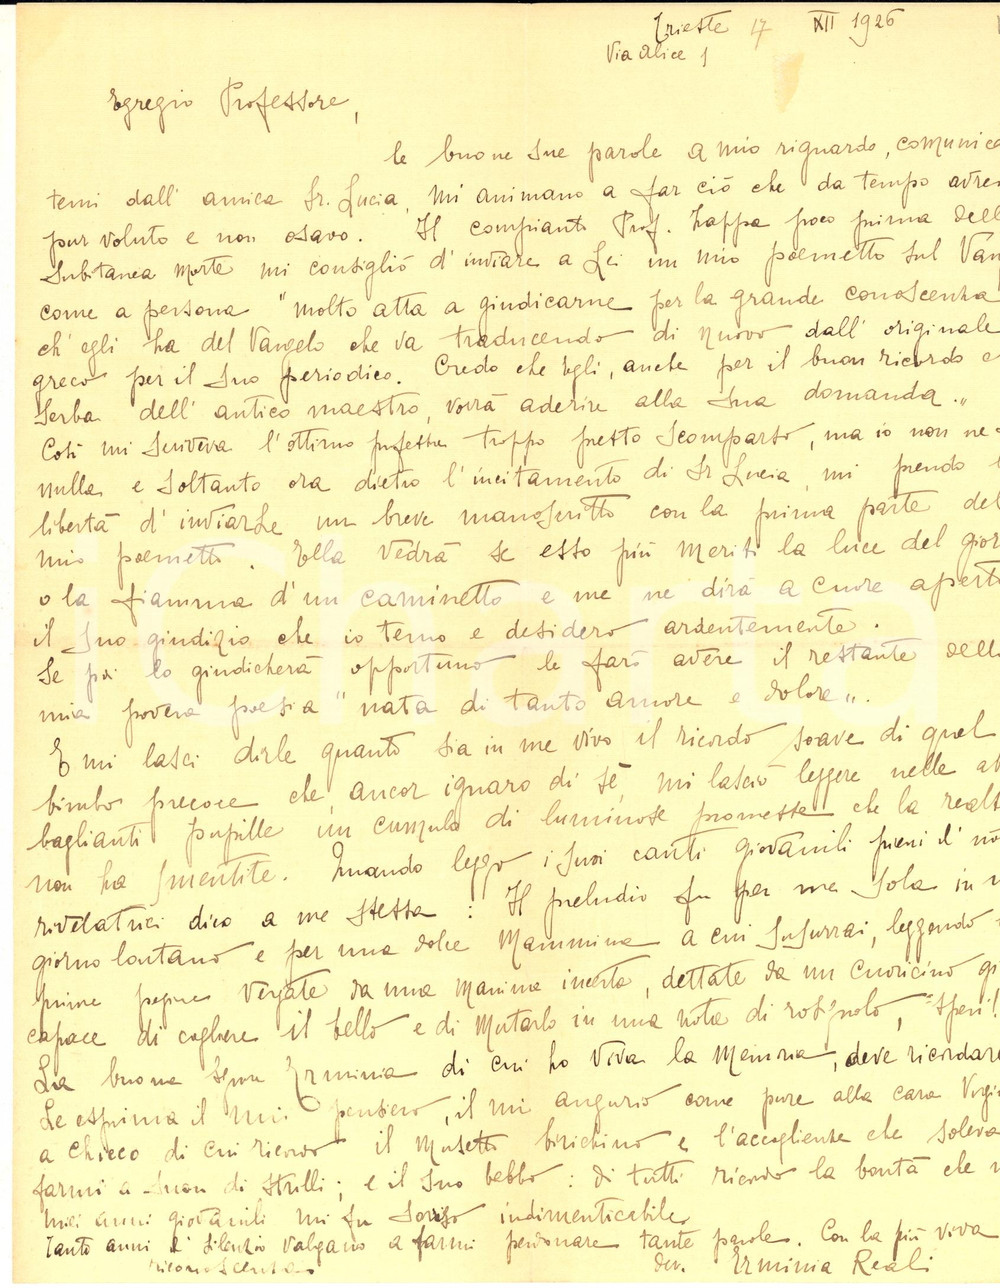 Trieste 17 XII 1926
Via Alice 1
Egregio Professore,
le buone Sue parole a mio riguardo, comunica
temi dall' amica Sr. Lucia, mi animano a far ciò che da tempo avrei
pur voluto e non osavo. Il compianto Prof. Zappa poco prima dell
Subitanea morte mi consigliò d' inviare a Lei un mio poemetto sul Van
come a persona "molto atta a giudicarne per la grande conoscenza
ch' egli ha del Vangelo che va traducendo di nuovo dall' originale
greco per il Suo periodico. Credo che Egli, anche per il buon ricordo c
serba dell' antico maestro, vorrà aderire alla Sua domanda."
Così mi scriveva l' ottimo professore troppo presto scomparso, ma io non ne
nulla e soltanto ora dietro l' incitamento di Sr Lucia, mi prendo l
libertà d' inviarLe un breve manoscritto con la prima parte del
mio poemetto. Ella vedrà se esso più meriti la luce del gior
o la fiamma d' un caminetto e me ne dirà a cuore aperto
il Suo giudizio che io temo e desidero ardentemente.
Se poi lo giudicherà opportuno le farò avere il restante della
mia povera poesia "nata di tanto amore e dolore".
E mi lasci dirLe quanto sia in me vivo il ricordo soave di quel
bimbo precoce che, ancor ignaro di sè, mi lasciò leggere nelle ab
baglianti pupille un cumulo di luminose promesse che la realtà
non ha smentite. Quando leggo i Suoi canti giovanili pieni d' no
rivelatrici dico a me stessa: Il preludio fu per me sola in u
giorno lontano e per una dolce Mammina a cui susurrai, leggendo
prime pagine vergate da una manina incerta, dettate da un cuoricino gi
capace di cogliere il bello e di mutarlo in una nota di rosignolo, "Speri!
La buona Sgra Erminia di cui ho viva la memoria, deve ricordare
Le esprima il mio pensiero, il mio augurio come pure alla cara Virgi
a Checo di cui ricordo il musetto birichino e l' accoglienza che soleva
farmi a suon di strilli; e il Suo babbo: di tutti ricordo la bontà che n
miei anni giovanili mi fu sorriso indimenticabile.
Tanti anni di silenzio valgano a farmi perdonare tante parole. Con la più viva
riconoscenza
dev. Erminia Reali